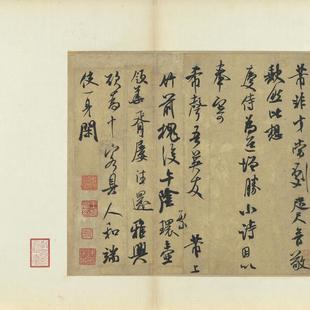 芾非才當劇咫尺音敬
缺然比想
慶侍為道增勝小詩因以
奉寄
希聲吾英友　芾上
竹前槐後午陰繁壺
領華胥屢往還雅興
欲為十客具人和端
使一身閑